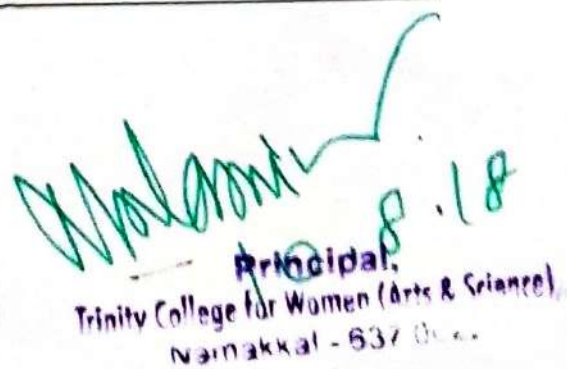 8.18
Principal,
Trinity College for Women (Arts & Science)
Namakkal - 637